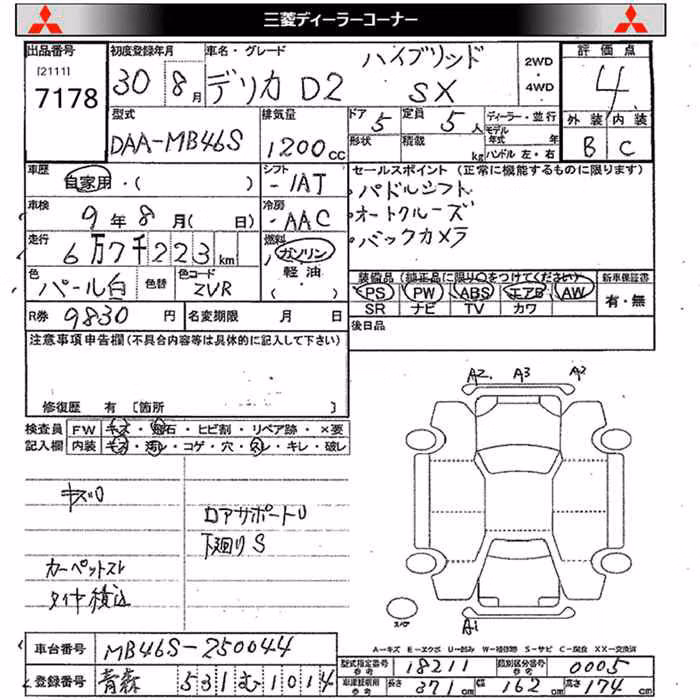 三菱ディーラーコーナー
出品番号 初度登録年月 車名・グレード 評価点
[2111]
7178
30 8月 デリカ D2 ハイブリッド SX
2WD・4WD
4
外装 内装
B C
型式 排気量 ドア 定員 ディーラー・並行
DAA-MB46S 1200cc 5 5人
モデル年式 年
形状 積載 kg ハンドル 左・右
車歴 シフト セールスポイント (正常に機能するものに限ります)
自家用・( ) -IAT
・パドルシフト
・オートクルーズ
・バックカメラ
車検 9年8月( 日) 冷房 AAC
走行 6万7千223km 燃料 ガソリン・軽油・( )
色 パール白 色替 色コード ZVR
装備品 (純正品に限り○をつけてください) 新車保証書
PS PW ABS エアB AW 有・無
SR ナビ TV カワ
R券 9830円 名変期限 月 日 後日品
注意事項申告欄 (不具合内容等は具体的に記入して下さい)
修復歴 有 [箇所 ]
検査員 FW キズ・飛石・ヒビ割・リペア跡・×要
記入欄 内装 キズ・汚レ・コゲ・穴・スレ・キレ・破レ
A2 A3 A2
キズU
ロアサポートU
下廻りS
カーペットスレ
タイヤ積込
A1
スペア
A-キズ E-エクボ U-凹み W-補修跡 S-サビ C-腐食 XX-交換済
車台番号 MB46S-250044
型式指定番号 参考 18211 類別区分番号 参考 0005
登録番号 青森 531 む 1014
車庫証明用 参考 長さ 371cm 幅 162cm 高さ 174cm